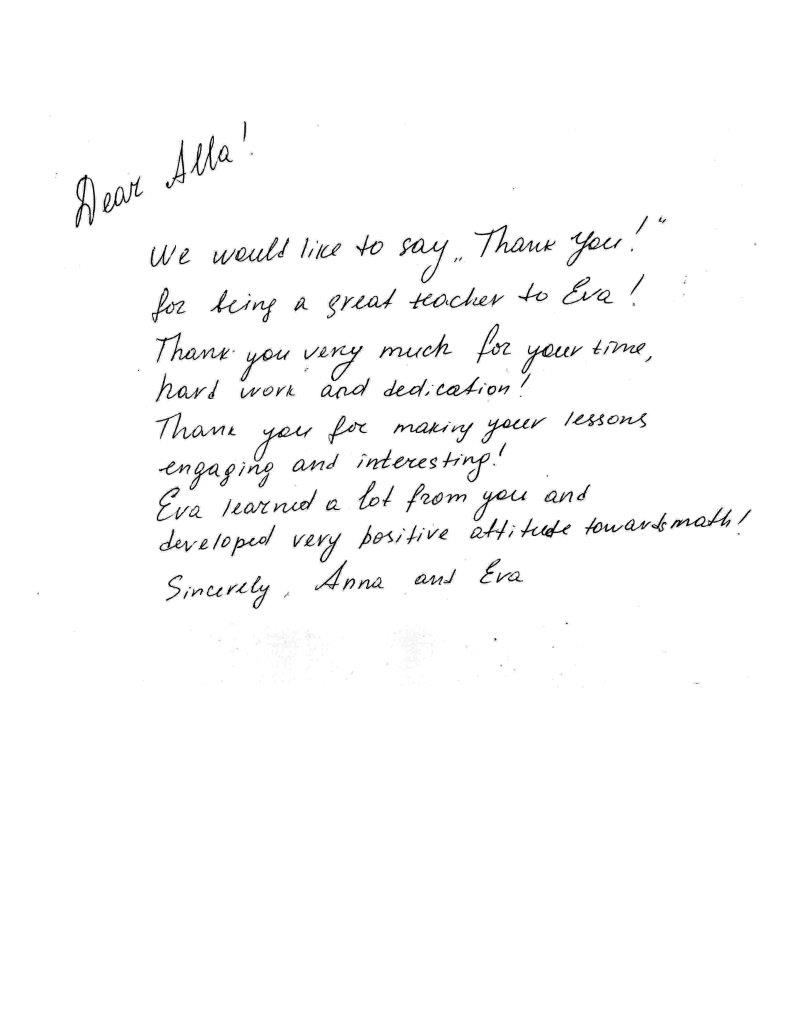 Dear Alla!
We would like to say „Thank you!“
for being a great teacher to Eva!
Thank you very much for your time,
hard work and dedication!
Thank you for making your lessons
engaging and interesting!
Eva learned a lot from you and
developed very positive attitude towards math!
Sincerely, Anna and Eva